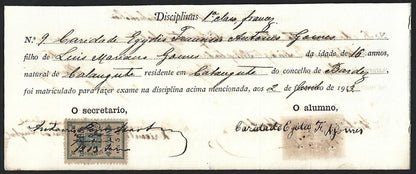 Disciplinas 1ª classe francez
N.º 9 Caridade Egydio Francisco Antonio Gomes
filho de Luis Mariano Gomes da idade de 16 annos,
natural de Calangute residente em Calangute do concelho de Bardez
foi matriculado para fazer exame na disciplina acima mencionada, aos 2 de 1913
O secretario, O alumno,
Antonio
Caridade Egidio F. A. Gomes